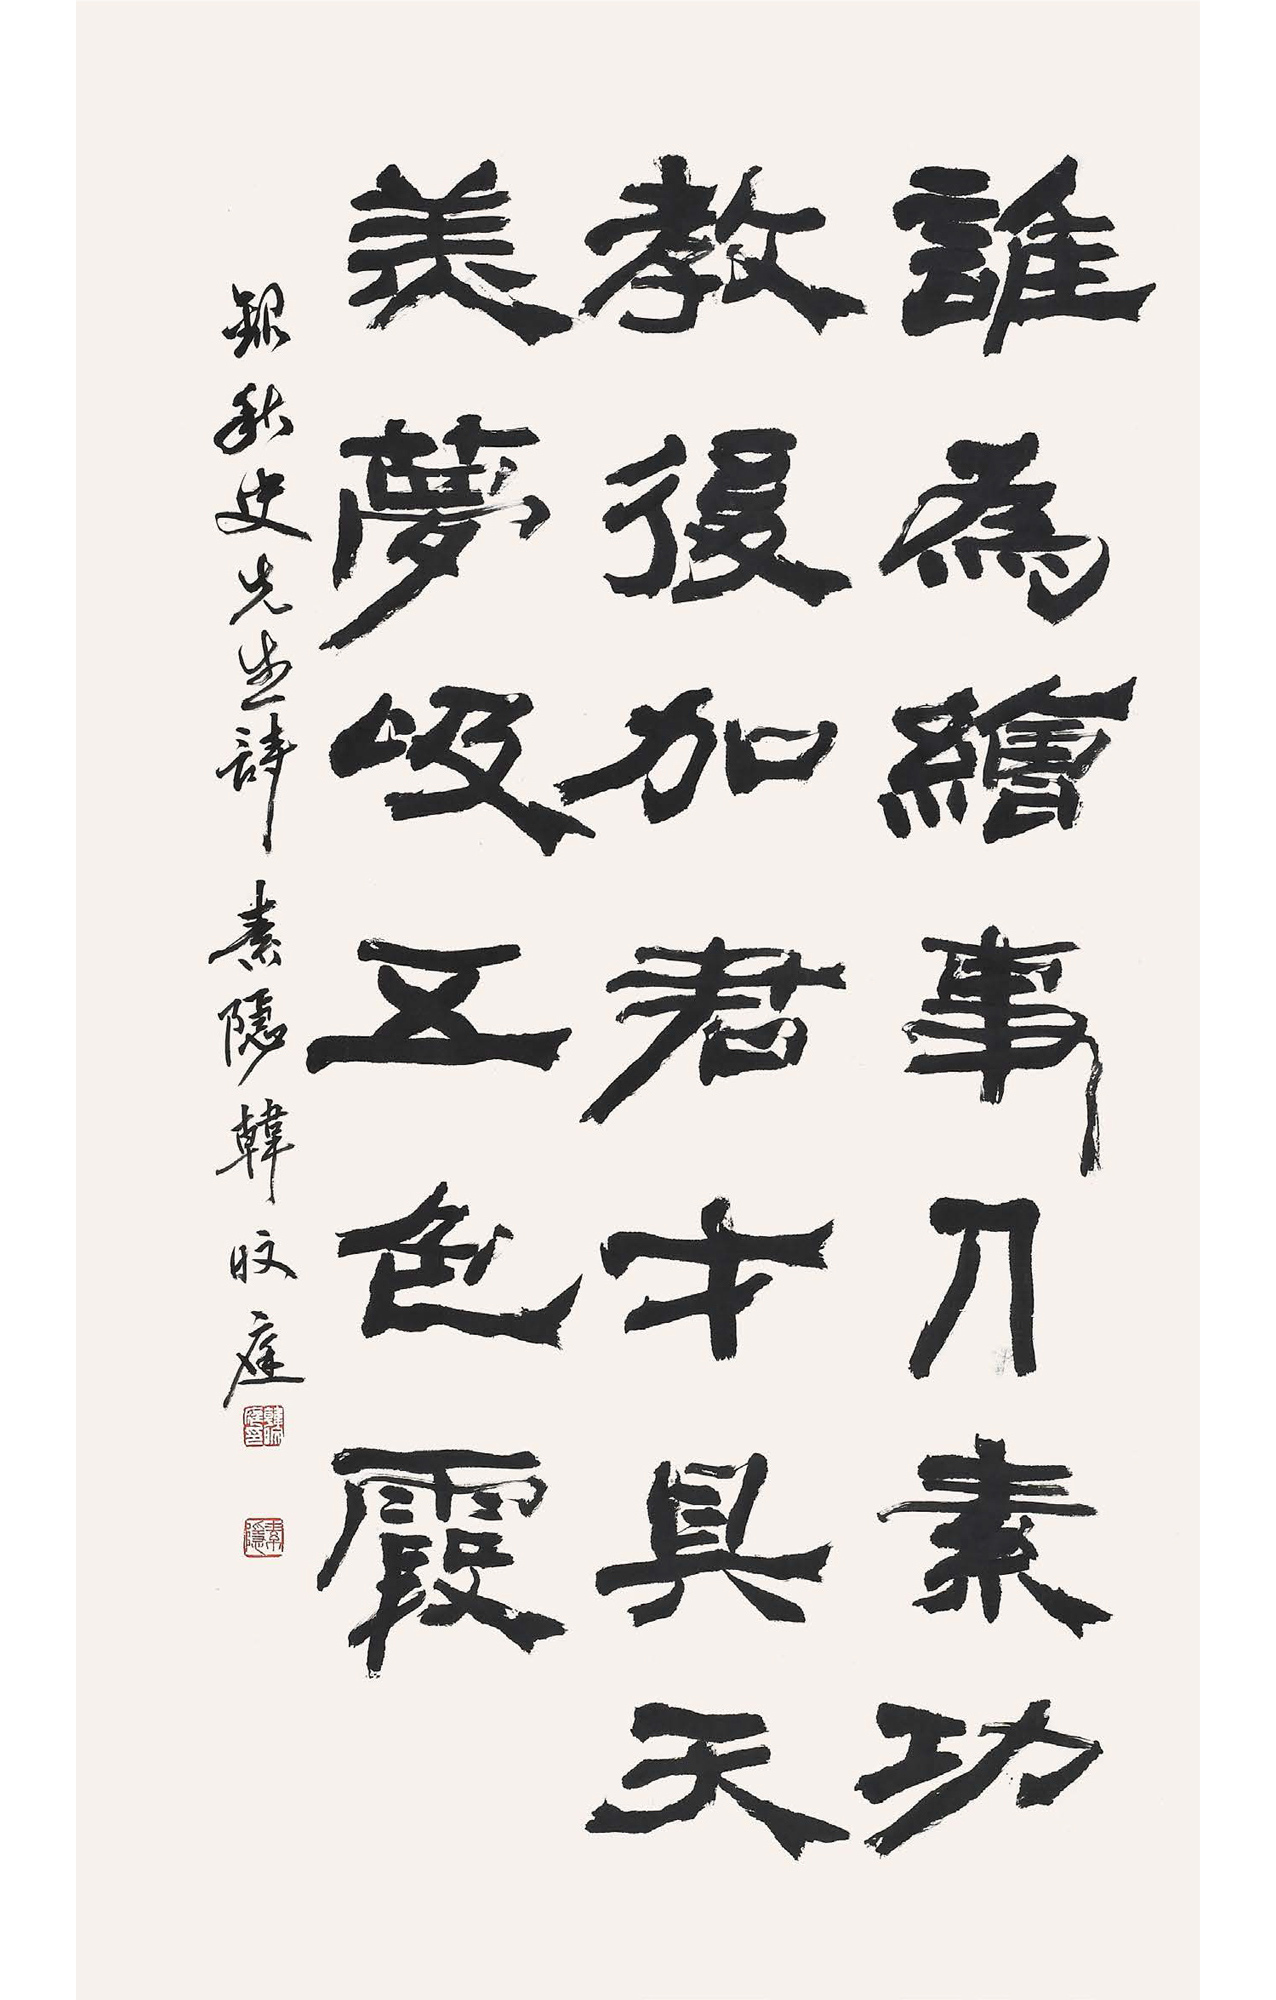 誰為繪事乃素功
教後加君才具天
美夢吸五色霞
錄秋史先生詩 素隱韓旼庭
素隱